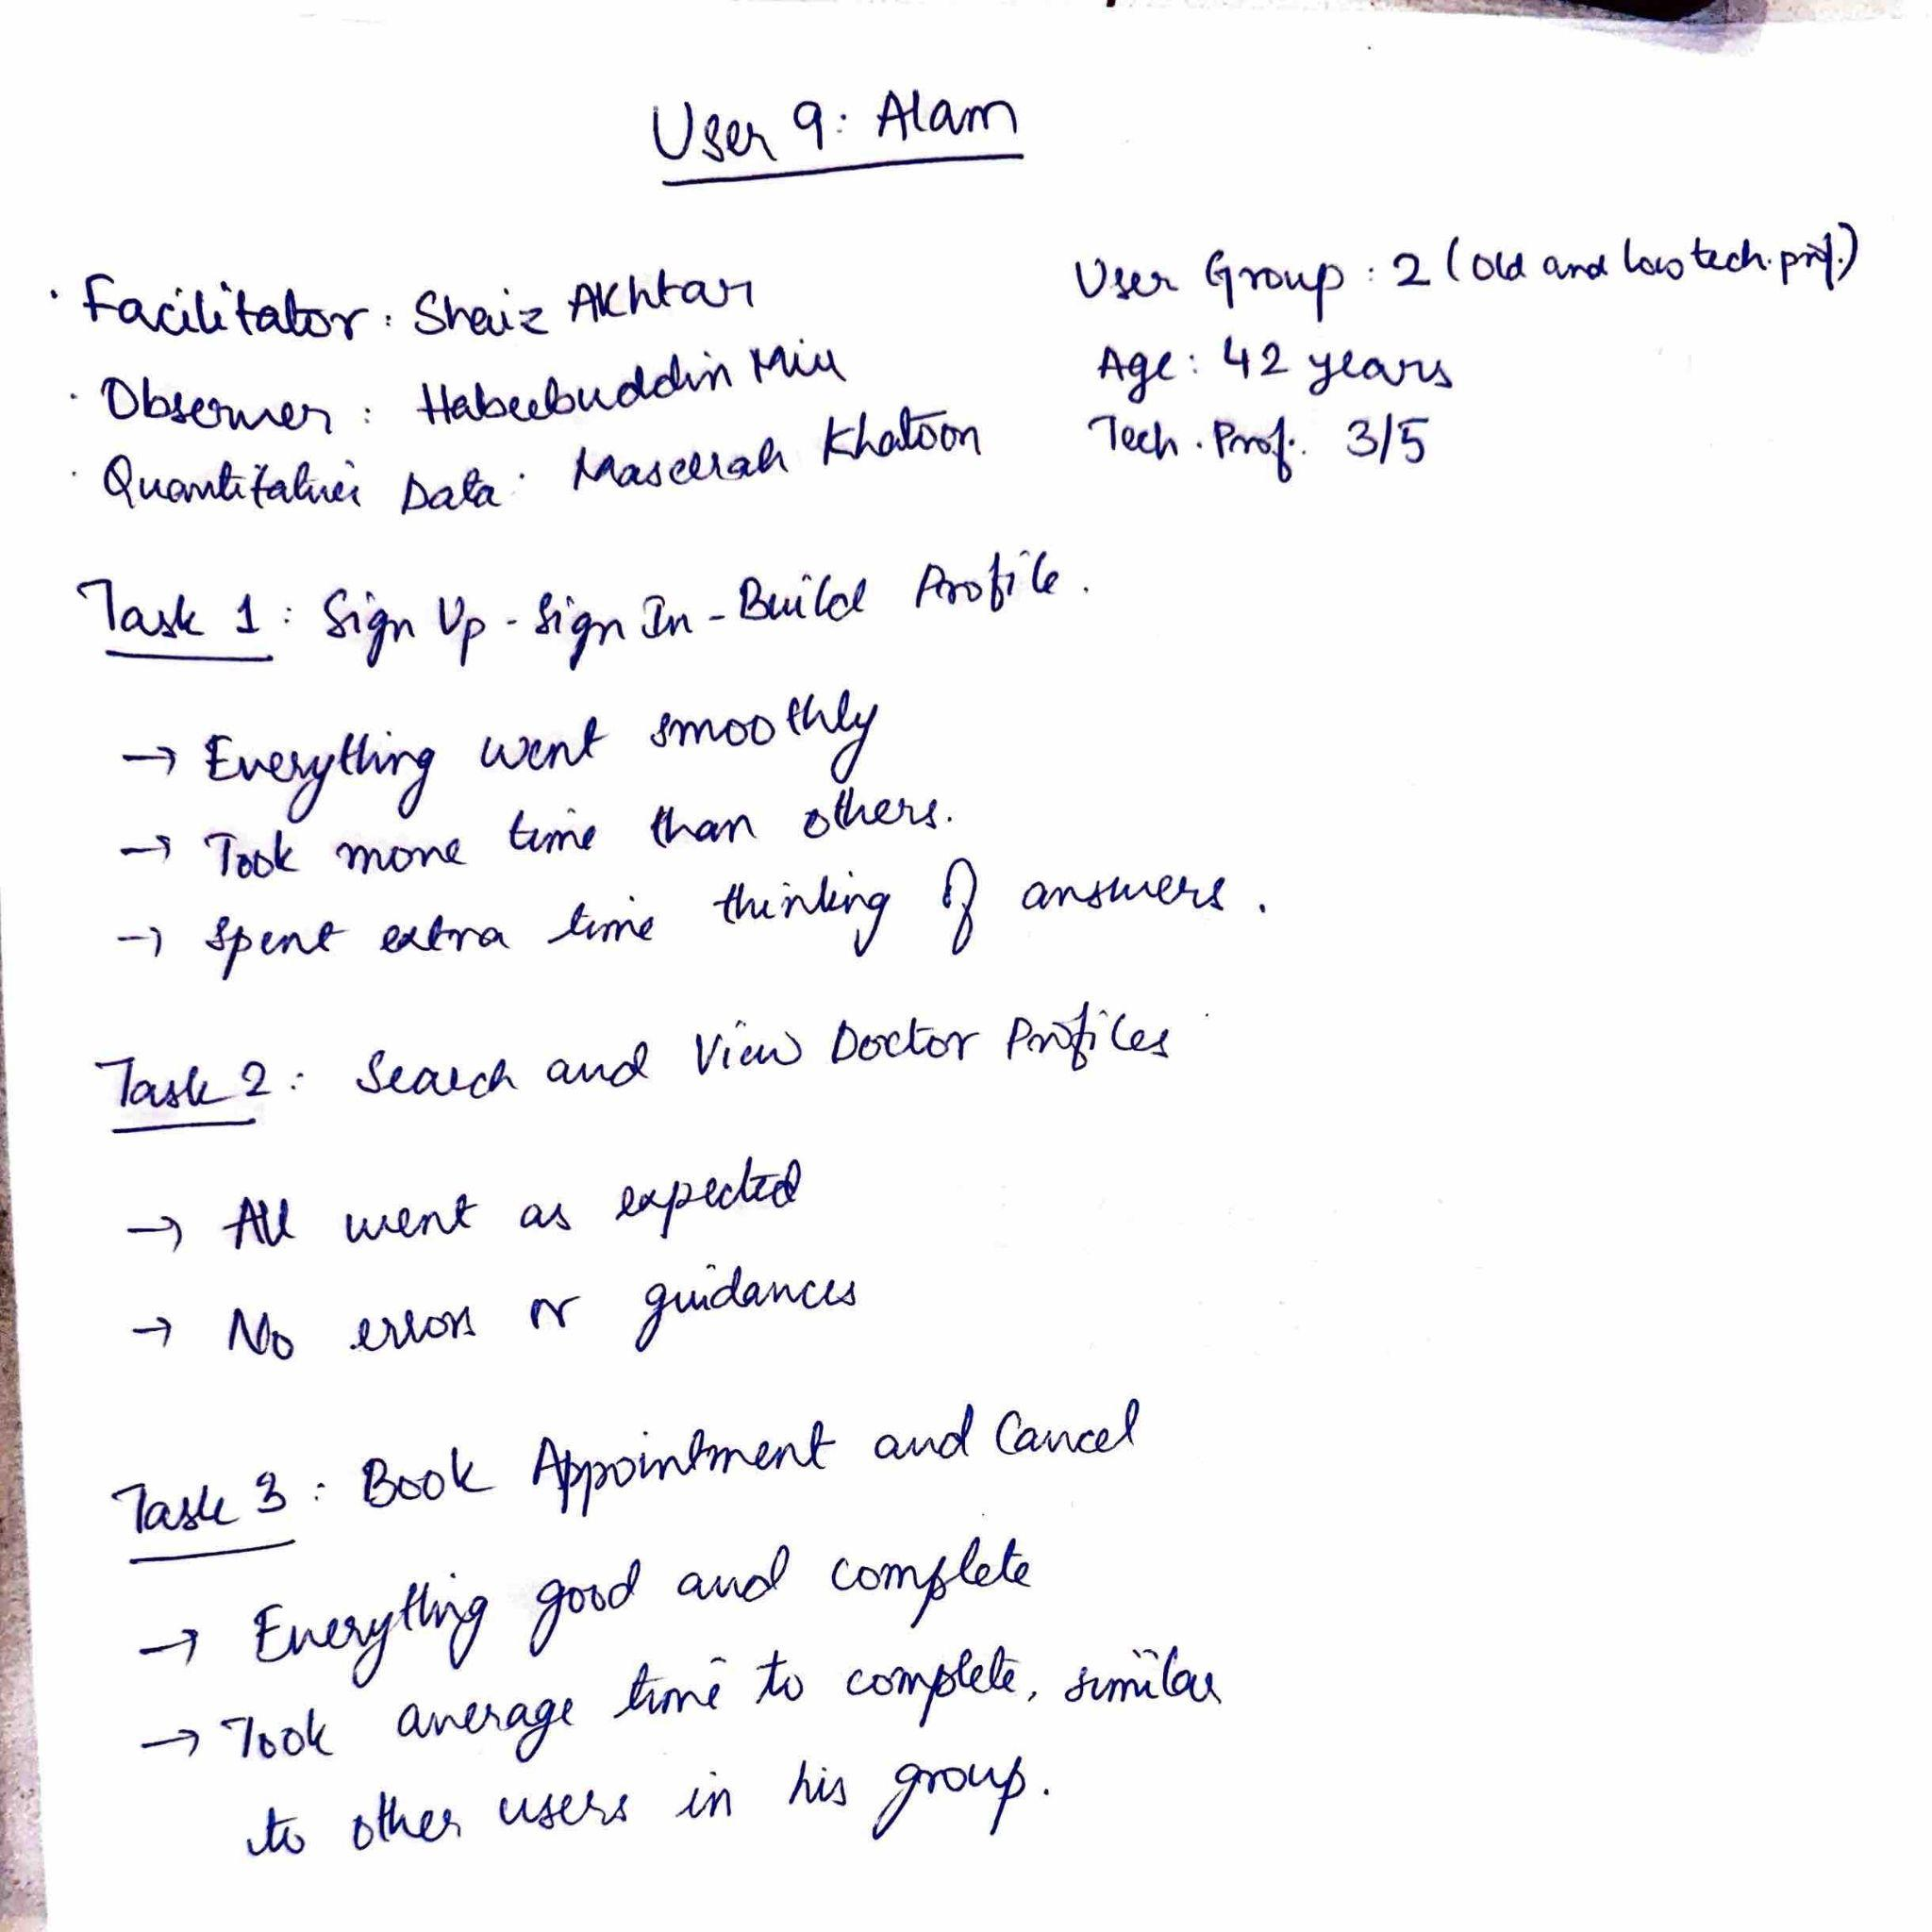 User 9: Alam
· Facilitator: Shaiz Akhtar
· Observer: Habeebuddin Mir
· Quantitative Data: Maseerah Khatoon
User Group: 2 (Old and low tech. prof.)
Age: 42 years
Tech. Prof. 3/5
Task 1: Sign Up - Sign In - Build Profile.
→ Everything went smoothly
→ Took more time than others.
→ Spent extra time thinking of answers.
Task 2: Search and View Doctor Profiles
→ All went as expected
→ No errors or guidances
Task 3: Book Appointment and Cancel
→ Everything good and complete
→ Took average time to complete, similar
to other users in his group.